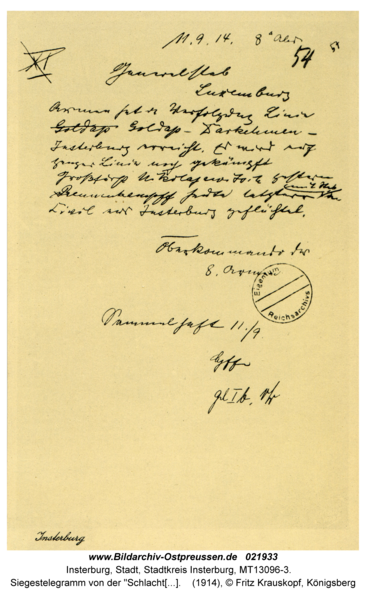 11.9.14. 8° Abd.
XI
54
Generalstab
Luxemburg
Armee hat in Verfolgung Linie
Goldap Goldap – Darkehmen –
Insterburg erreicht. Es wird auf
ganzer Linie noch gekämpft
Großfürst Nikolajewitsch gestern
Rennenkampf heute letzterer in
Zivil aus Insterburg geflüchtet.
Oberkommando der
8. Armee
Eigentum
Reichsarchivs
Sammelheft 11./9
Insterburg
www.Bildarchiv-Ostpreussen.de 021933
Insterburg, Stadt, Stadtkreis Insterburg, MT13096-3.
Siegestelegramm von der "Schlacht[...]. (1914), © Fritz Krauskopf, Königsberg